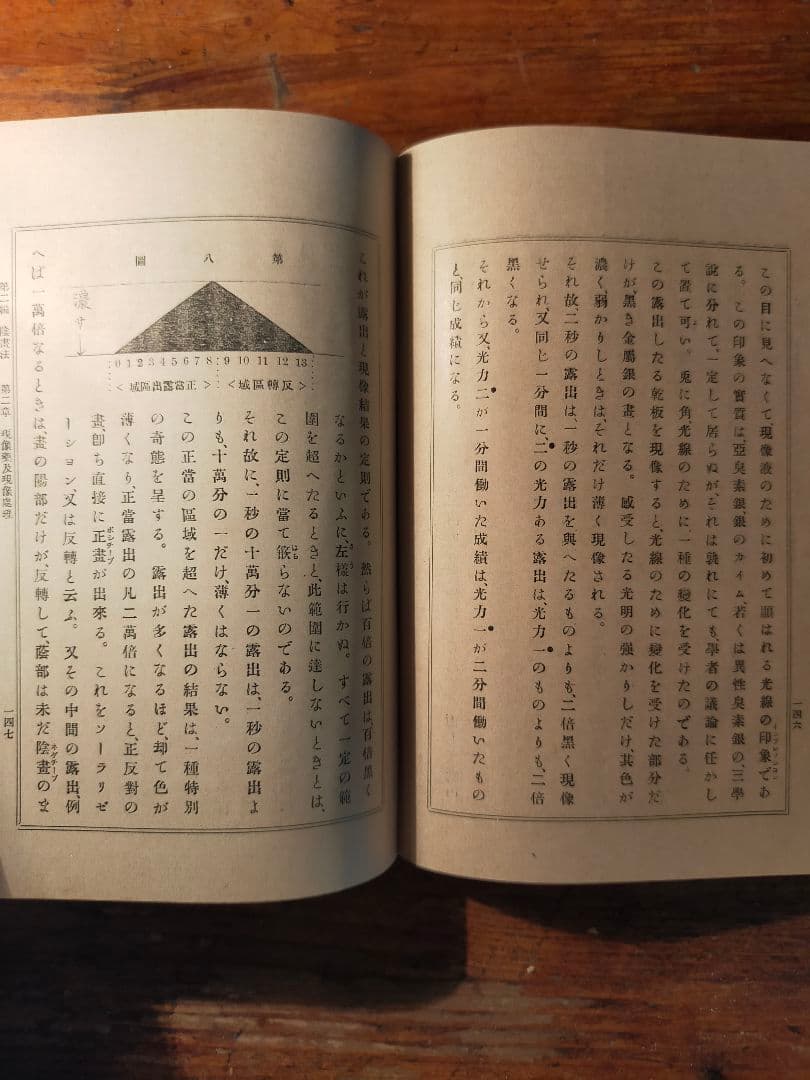 この目に見へなくて、現像液のために初めて顯はれる光線の印象であ
インプレッション
る。この印象の實質は、亞臭素銀、銀のカイム、若くは異性臭素銀の、三學
說に分れて、一定して居らぬが、それは孰れにても、學者の議論に任かし
て置て可い。兎に角、光線のために、一種の變化を受けたのである。
この露出したる乾板を現像すると、光線のために變化を受けた部分だ
けが、黑き金屬銀の畫となる。感受したる光明の强かりしだけ、其色が
濃く、弱かりしときは、それだけ薄く現像される。
それ故、二秒の露出は、一秒の露出を與へたるものよりも、二倍黑く現像
せられ、又同じ一分間に、二の光力ある露出は、光力一のものよりも、二倍
黑くなる。
それから又、光力二が一分間働いた成績は、光力一が二分間働いたもの
と、同じ成績になる。
一四六
これが露出と現像結果の定則である。然らば百倍の露出は、百倍黑く
なるかといふに、左樣は行かぬ。すべて一定の範
圍を超へたるときと、此範圍に達しないときとは、
この定則に當て篏らないのである。
それ故に、一秒の十萬分一の露出は、一秒の露出よ
りも、十萬分の一だけ、薄くはならない。
この正當の區域を超へた露出の結果は、一種特別
の奇態を呈する。露出が多くなるほど、却て色が
薄くなり、正當露出の凡二萬倍になると、正反對の
畫、卽ち直接に正畫が出來る。これをソーラリゼ
ポシチーブ
ーション、又は反轉と云ふ。又その中間の露出、例
へば一萬倍なるときは、畫の陽部だけが、反轉して、蔭部は未だ陰畫のま
ネガチーブ
第八圖
濃サ
0 1 2 3 4 5 6 7 8 9 10 11 12 13
<正當露出區域> <反轉區域>
第二編 陰畫法 第二章 現像藥及現像處理
一四七